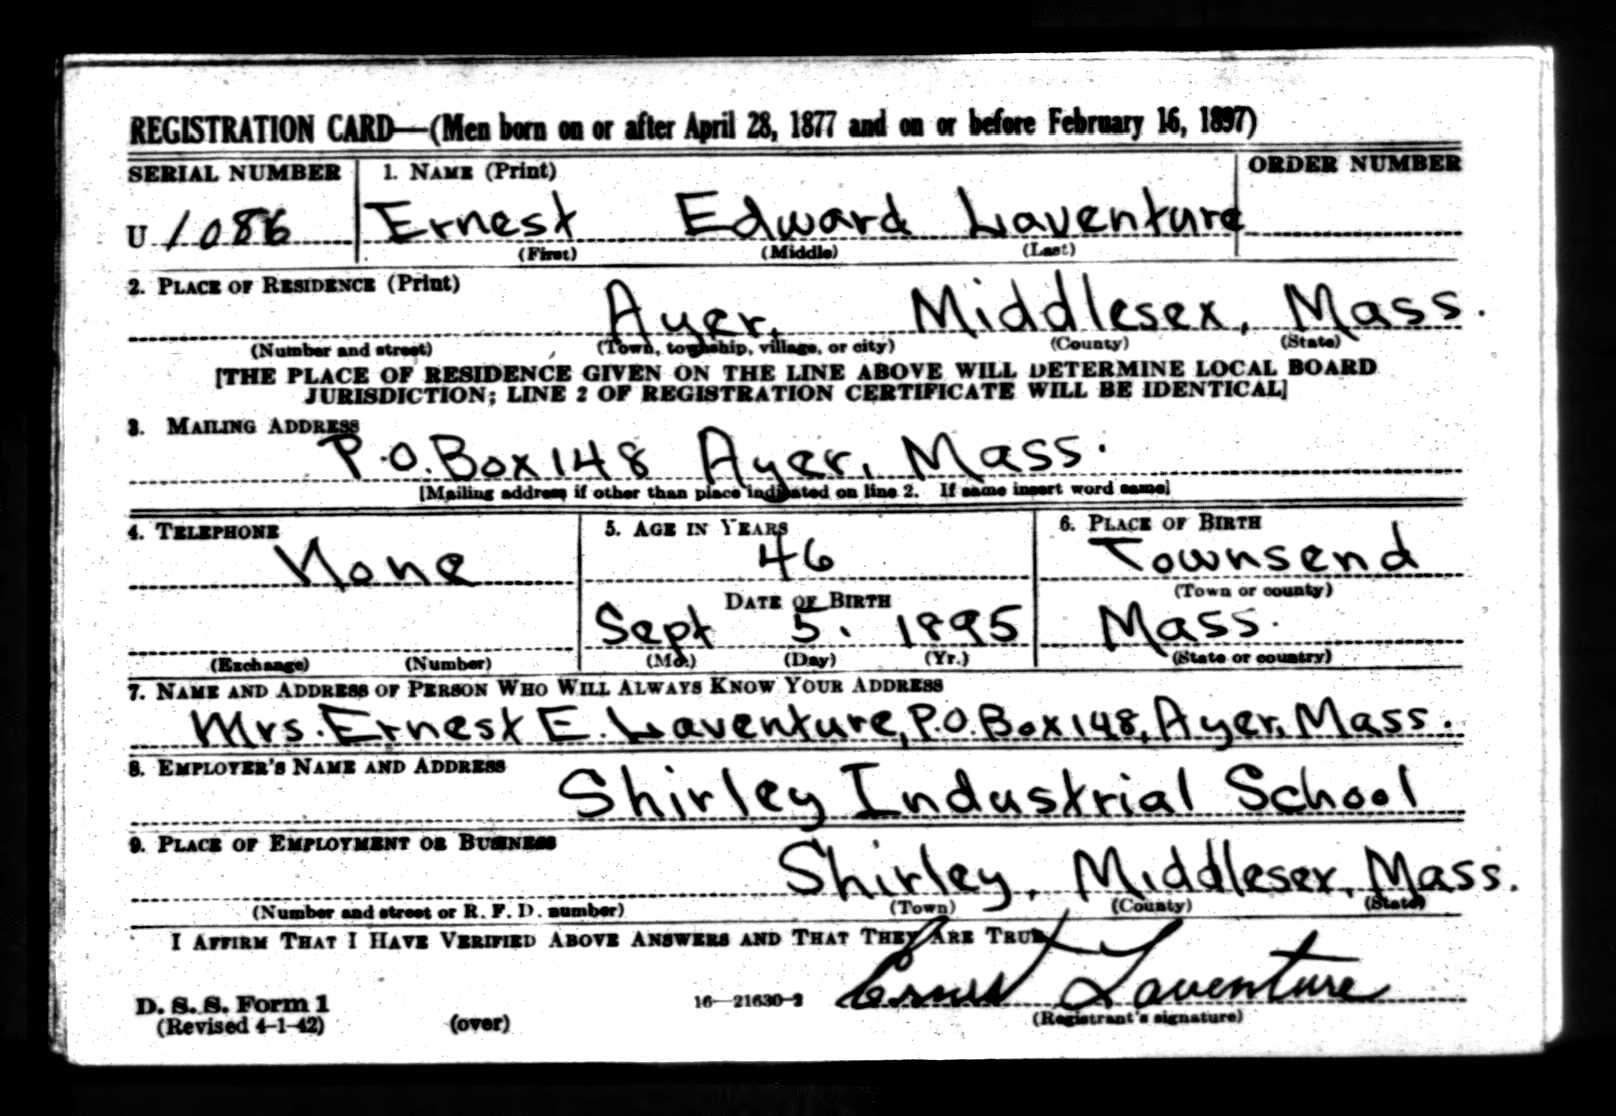 REGISTRATION CARD—(Men born on or after April 28, 1877 and on or before February 16, 1897)
SERIAL NUMBER 1. NAME (Print) ORDER NUMBER
U 1086 Ernest Edward Laventure
(First) (Middle) (Last)
2. PLACE OF RESIDENCE (Print)
Ayer, Middlesex, Mass.
(Number and street) (Town, township, village, or city) (County) (State)
[THE PLACE OF RESIDENCE GIVEN ON THE LINE ABOVE WILL DETERMINE LOCAL BOARD
JURISDICTION; LINE 2 OF REGISTRATION CERTIFICATE WILL BE IDENTICAL]
3. MAILING ADDRESS
P.O. Box 148 Ayer, Mass.
[Mailing address if other than place indicated on line 2. If same insert word same]
4. TELEPHONE 5. AGE IN YEARS 6. PLACE OF BIRTH
None 46 Townsend
DATE OF BIRTH (Town or county)
Sept 5. 1895 Mass.
(Exchange) (Number) (Mo.) (Day) (Yr.) (State or country)
7. NAME AND ADDRESS OF PERSON WHO WILL ALWAYS KNOW YOUR ADDRESS
Mrs. Ernest E. Laventure, P.O. Box 148, Ayer, Mass.
8. EMPLOYER'S NAME AND ADDRESS
Shirley Industrial School
9. PLACE OF EMPLOYMENT OR BUSINESS
Shirley, Middlesex, Mass.
(Number and street or R. F. D. number) (Town) (County) (State)
I AFFIRM THAT I HAVE VERIFIED ABOVE ANSWERS AND THAT THEY ARE TRUE.
Ernest Laventure
D. S. S. Form 1 16—21630-2
(Revised 4-1-42) (over) (Registrant's signature)